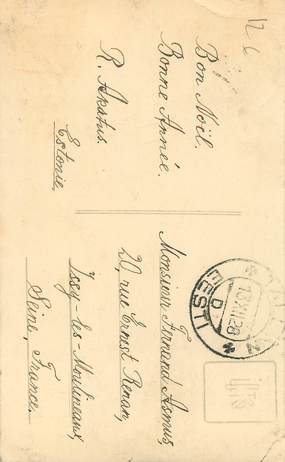 Bon Noël.
Bonne Année.
R. Akatus.
Estonie.
Monsieur Fernand Asmus,
20, rue Ernst Renan,
Issy-les-Moulineaux,
Seine, France.
13 XII 28
D
EESTI